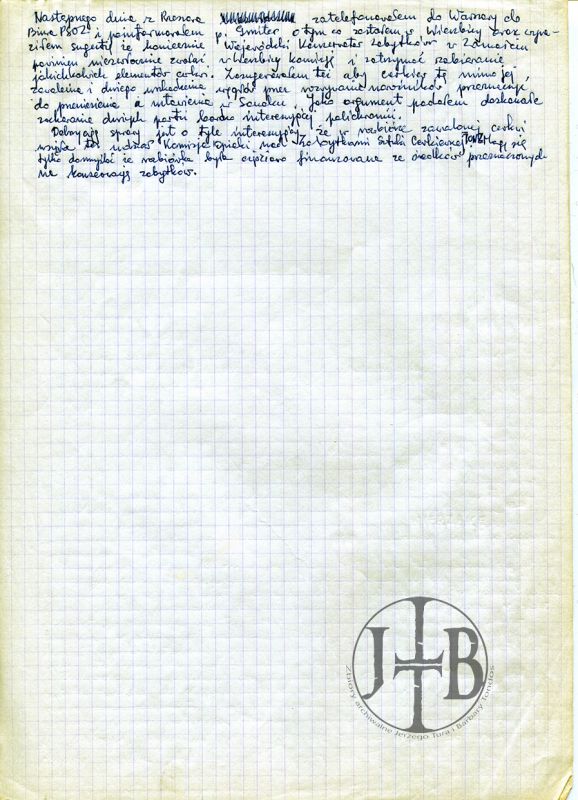 Następnego dnia z Rzeszowa zatelefonowałem do Warszawy do
Biura PSOZ i poinformowałem p. Gmiter o tym co zastałem w Wierzbicy oraz wyra-
ziłem sugestię że koniecznie Wojewódzki Konserwator Zabytków w Zamościu
powinien niezwłocznie zwołać w Wierzbicy komisję i zatrzymać zabieranie
jakichkolwiek elementów cerkwi. Zasugerowałem też aby cerkiew tę mimo jej
zawalenia i dużego uszkodzenia przez rozrywanie przeznaczyć
do przeniesienia a ustawienia w Sanoku. Jako argument podałem doskonale
zachowane dwie partii bardzo interesującej polichromii.
sprawy jest o tyle interesujący że w rozbiórce zawalonej cerkwi
wzięła też udział Komisja Opieki nad Zabytkami Sztuki Cerkiewnej, się
tylko domyślać że rozbiórka była częściowo finansowana ze środków przeznaczonych
na konserwację zabytków.
JTB
Zbiory archiwalne Jerzego Tura i Barbary Tondos